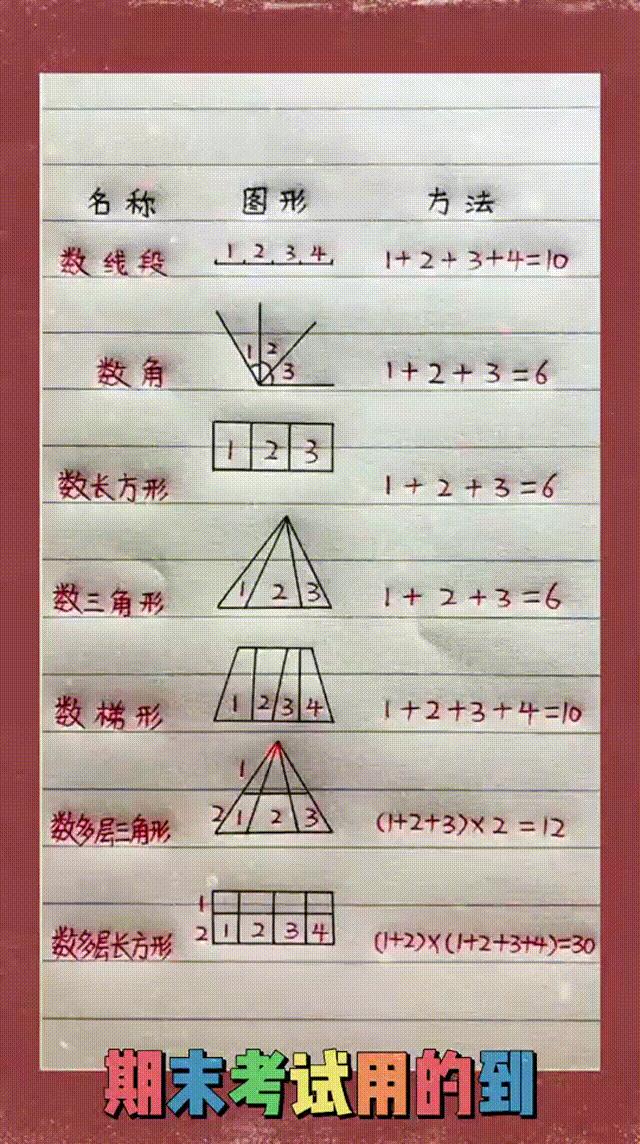 名称 图形 方法
数线段 1 2 3 4 1+2+3+4=10
数角 1 2 3 1+2+3=6
数长方形 1 2 3 1+2+3=6
数三角形 1 2 3 1+2+3=6
数梯形 1 2 3 4 1+2+3+4=10
1
数多层三角形 2 1 2 3 (1+2+3)×2=12
1
数多层长方形 2 1 2 3 4 (1+2)×(1+2+3+4)=30
期末考试用的到